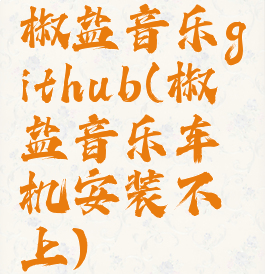 椒盐音乐g
ithub(椒
盐音乐车
机安装不
上)